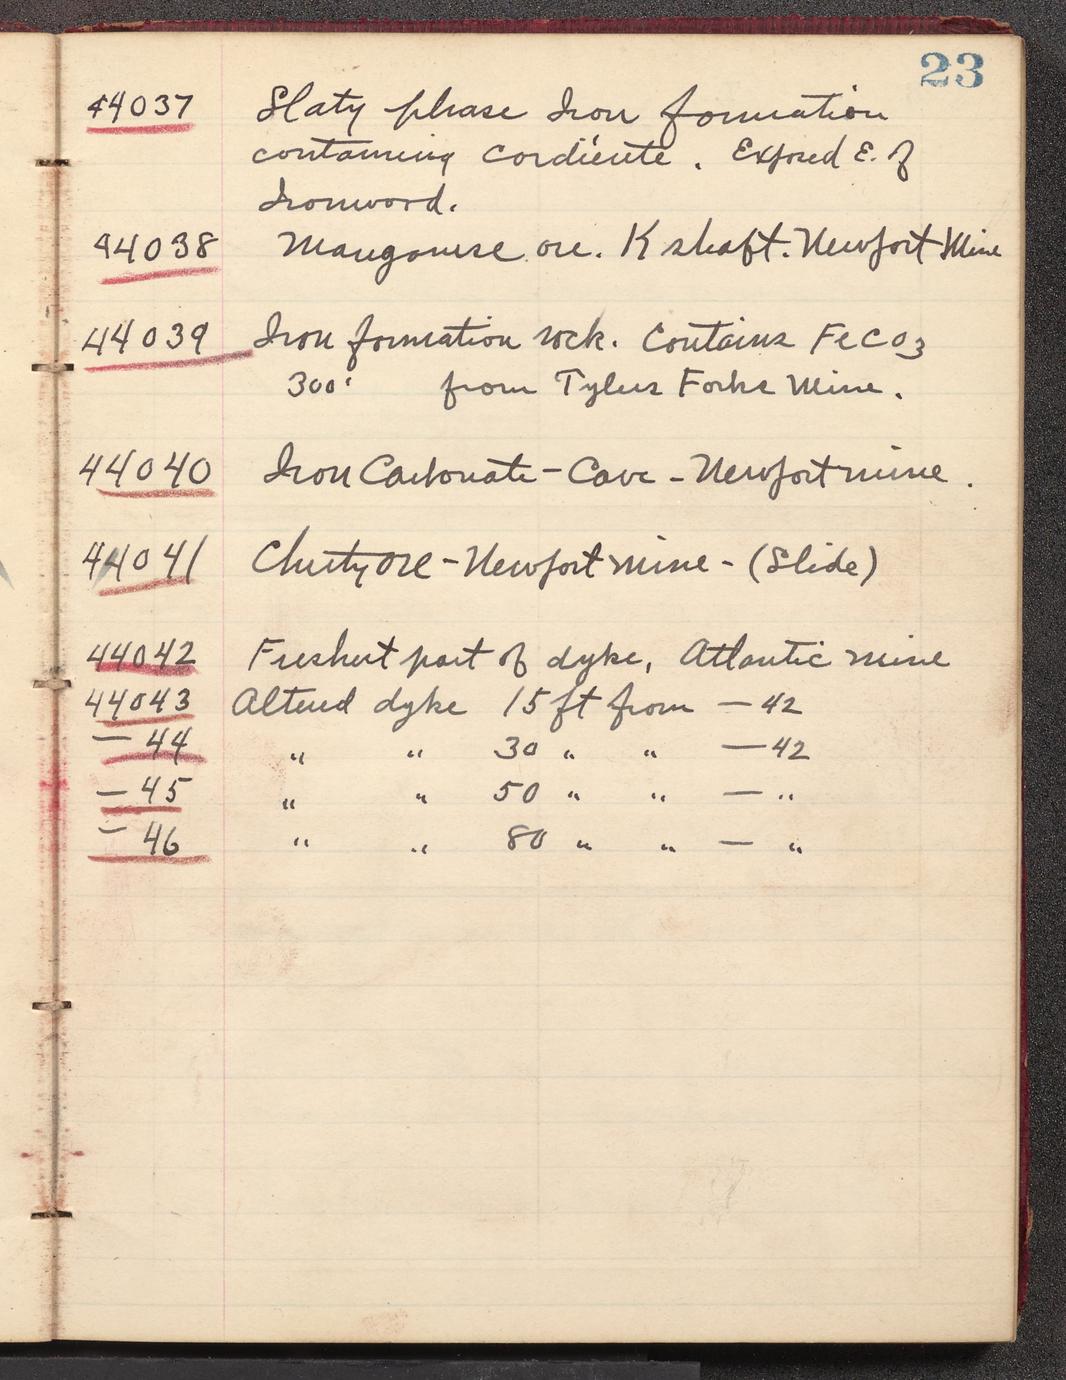 23
44037 Slaty phase Iron formation
containing Cordierite. Exposed E. of
Ironwood.
44038 Manganese ore. K shaft. Newfort Mine
44039 Iron formation rock. Contains FeCO3
300' from Tylers Forks Mine.
44040 Iron Carbonate - Cave - Newfort mine.
44041 Cherty ore - Newfort mine - (Slide)
44042 Freshest part of dyke, Atlantic mine
44043 Altered dyke 15 ft from — 42
— 44 " " 30 " " — 42
— 45 " " 50 " " — "
— 46 " " 80 " " — "